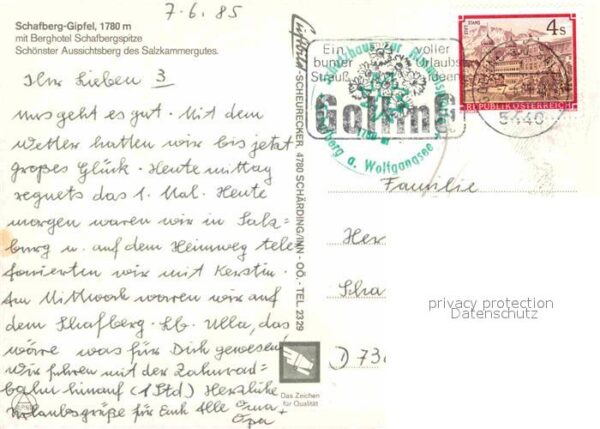 7.6.85
Schafberg-Gipfel, 1780 m
mit Berghotel Schafbergspitze
Schönster Aussichtsberg des Salzkammergutes.
Ihr Lieben 3
uns geht es gut. Mit dem
Wetter hatten wir bis jetzt
großes Glück. Heute mittag
regnets das 1. Mal. Heute
morgen waren wir in Salz-
burg u. auf dem Heimweg tele
fonierten wir mit Kerstin.
Am Mittwoch waren wir auf
dem Schafberg. Lb. Ulla, das
wäre was für Dich gewesen,
wir fuhren mit der Zahnrad-
bahn hinauf (1 Std) Herzliche
Urlaubsgrüße für Euch Alle Oma +
Opa
SCHEURECKER, 4780 SCHÄRDING/INN - OÖ. - TEL. 2329
Das Zeichen
für Qualität
Ein voller
bunter Urlaubs
Strauß ideen
Golling
1780 m
a. Wolfgangsee
5440
4 S
STIFT STAMS
REPUBLIK ÖSTERREICH
Familie
Her
Scha
D 73
privacy protection
Datenschutz